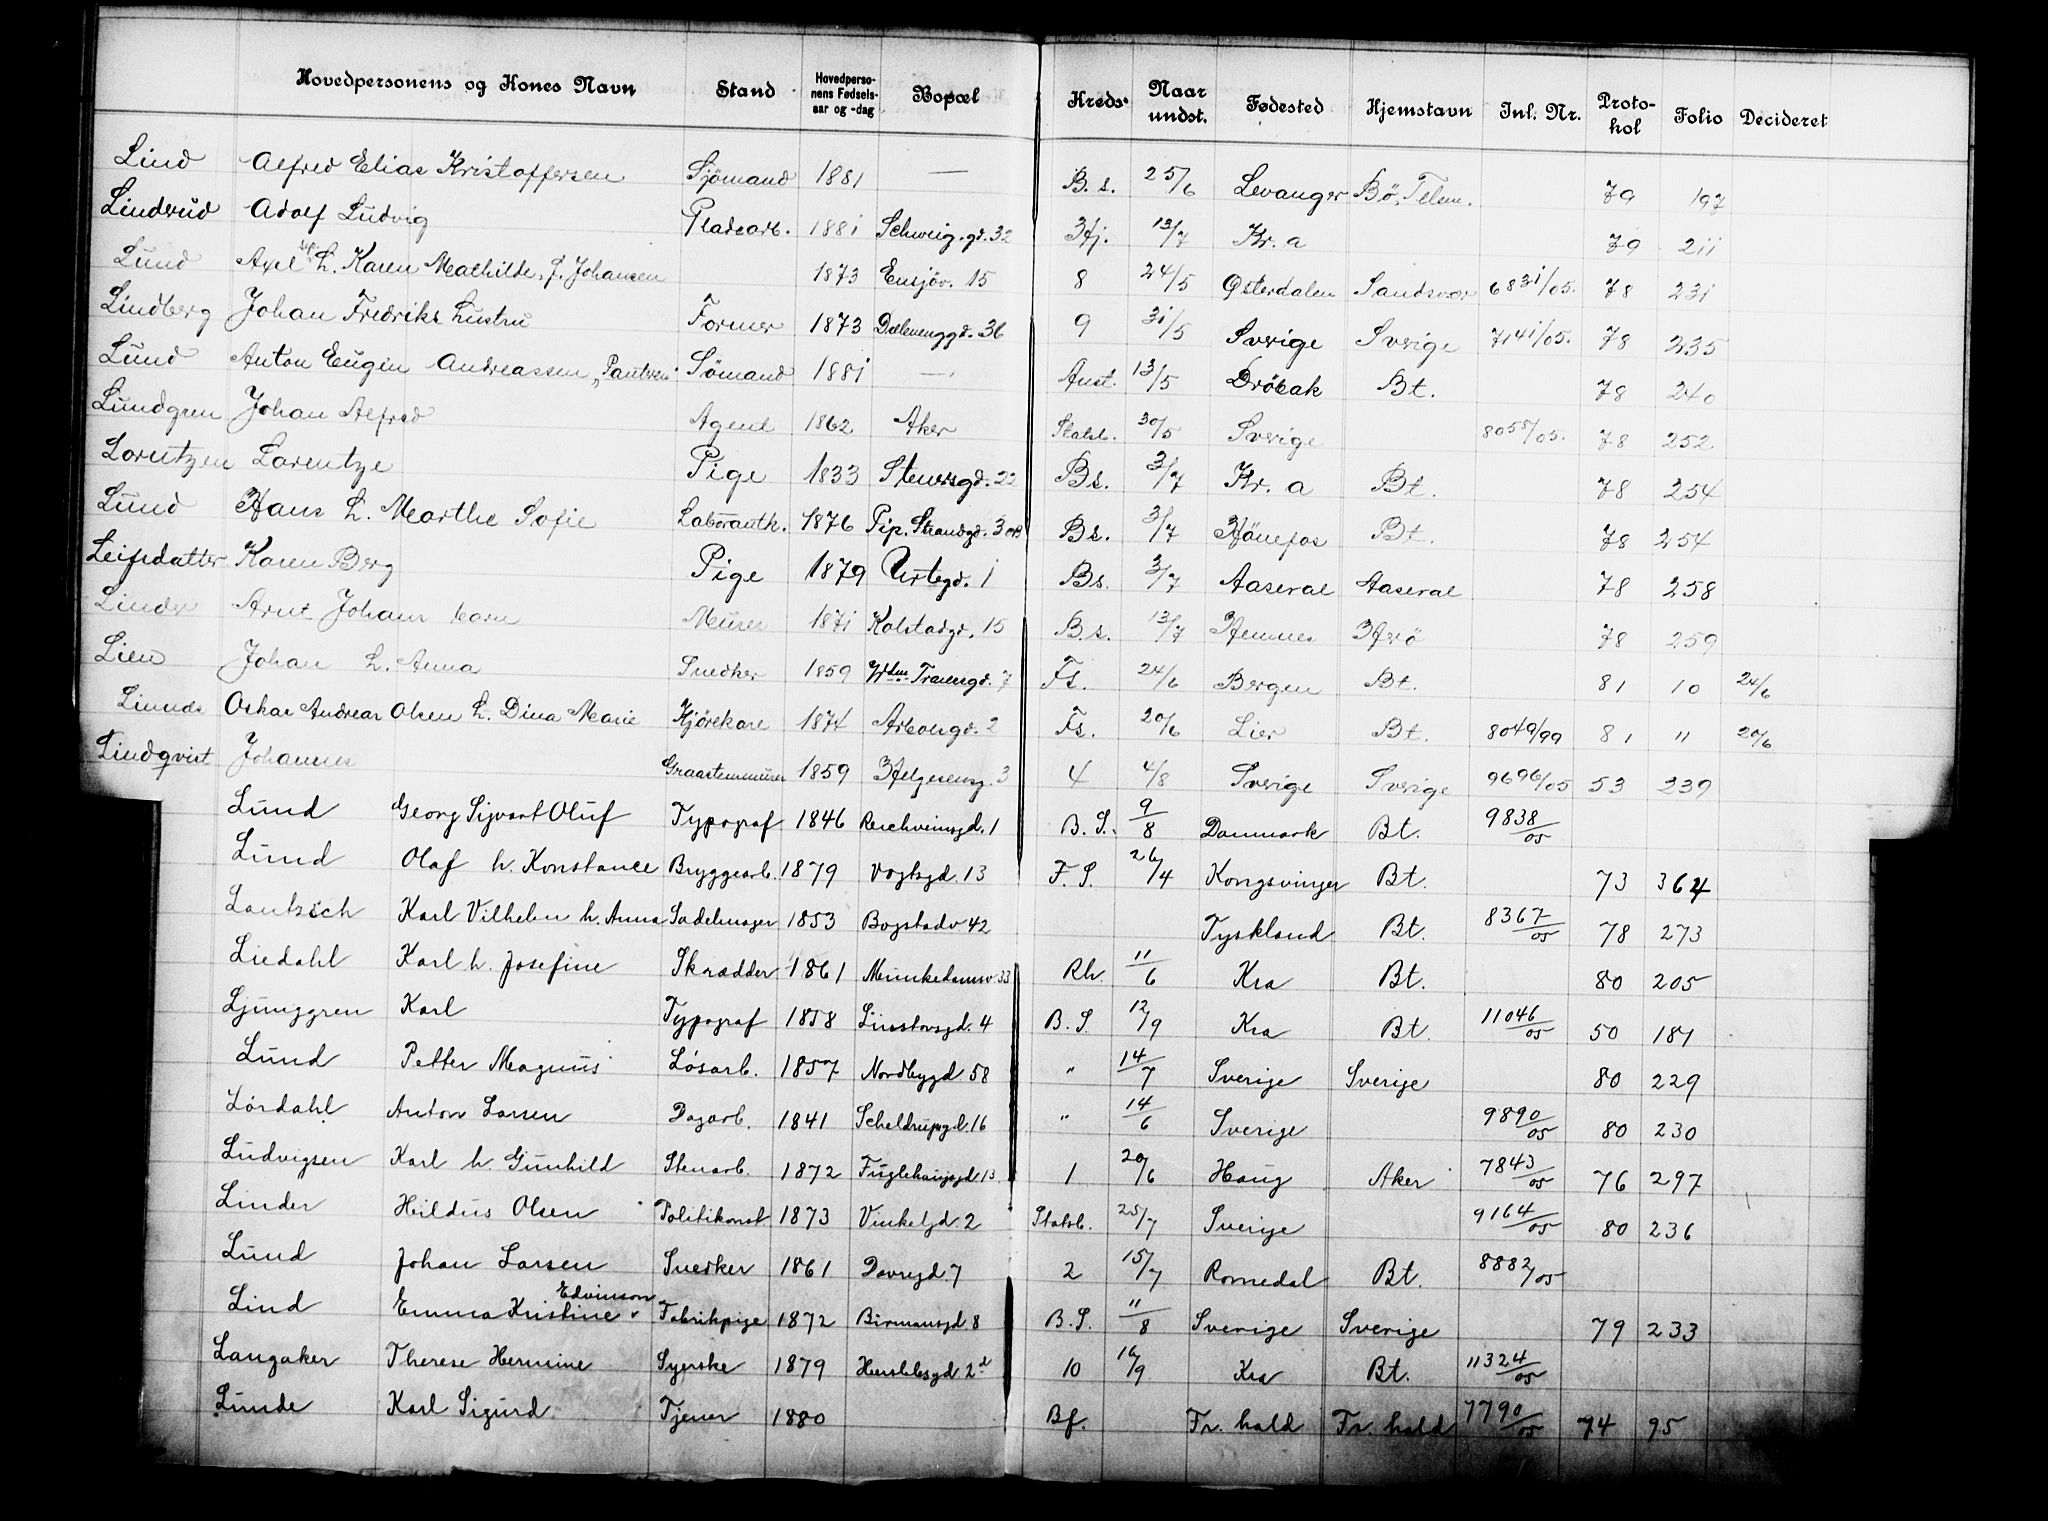 Hovedpersonens og Kones Navn Stand Hovedpersonens Fødselsaar og -dag Bopæl Kreds Naar undst. Fødested Hjemstavn Inl. Nr. Protokol Folio Decideret
Lind Alfred Elias Kristoffersen Sjömand 1881 — B. s. 25/6 Levanger Bö, Telem. 79 197
Linderud Adolf Ludvig Pladsarb. 1881 Schweig.gd. 32 Hj. 13/7 Kr.a 79 211
Lund Axel L. Karen Mathilde, f. Johansen 1873 Ensjöv. 15 8 24/5 Østerdalen Sandsvær 6831/05. 78 231
Lindberg Johan Fredriks Lustru Former 1873 Dælenenggd. 36 9 31/5 Sverige Sverige 7141/05. 78 235
Lund Anton Eugen Andreassen "Paulsen" Sömand 1881 — Anst. 13/5 Dröbak Bt. 78 240
Lundgren Johan Alfred Agent 1862 Aker Statsb. 30/5 Sverige 8058/05. 78 252
Lorentzen Lorentze Pige 1833 Stenersgd. 22 Bs. 3/7 Kr. a Bt. 78 254
Lund Hans L. Marthe Sofie Laboranth. 1876 Pip. Strandgd. 3 Bs. 3/7 Hönefos Bt. 78 254
Leifsdatter Karen Berg Pige 1879 Urtegd. 1 Bs. 3/7 Aaseral Aaseral 78 258
Linder Arnt Johans Murer 1871 Kolstadgd. 15 B.s. 13/7 Hemnes 78 259
Lien Johan L. Anna Snedker 1859 Tranengd. 7 Fs. 24/6 Bergen Bt. 81 10 24/6
Linnes Oskar Andreas Olsen L. Dina Marie Kjörekare 1874 Arboesgd. 2 Fs. 20/6 Lier Bt. 8049/99 81 11 20/6
Lindqvist Johannes Graastenmurer 1859 Helgesensg. 3 4 4/8 Sverige Sverige 9696/05 53 239
Lund Georg Sigvart Oluf Typograf 1846 Reichweinsgd. 1 B. S. 9/8 Danmark Bt. 9838/05
Lund Olaf h. Konstance Bryggearb. 1879 Vogtsgd. 13 F. S. 26/4 Kongsvinger Bt. 73 364
Lantzsch Karl Vilhelm h. Anna Sadelmager 1853 Bogstadv 42 Tyskland Bt. 8367/05 78 273
Liedahl Karl h. Josefine Skrædder 1861 Munkedamsv. 33 Rh. 11/6 Kra Bt. 80 205
Ljunggren Karl Typograf 1858 Linstowsgd. 4 B. S. 12/9 Kra Bt. 11046/05 50 181
Lund Petter Magnus Løsarb. 1857 Nordbygd 58 " 14/7 Sverige Sverige 80 229
Lördahl Anton Larsen Dagarb. 1841 Scheldrupsgd. 16 " 14/6 Sverige 9890/05 80 230
Ludvigsen Karl h. Gunhild Stenarb. 1872 Fuglehaugsgd 13 1 20/6 Haug Aker 7843/05 76 297
Linder Hildus Olsen Politikonst 1873 Vinkelgd. 2 Statsb. 25/7 Sverige 9164/05 80 236
Lund Johan Larsen Snedker 1861 Dovregd 7 2 15/7 Romedal Bt. 8882/05
Lind Emma Kristine Edvinson Fabrikpige 1872 Birmansgd 8 B. S. 11/8 Sverige Sverige 79 233
Langaker Therese Hermine Syerske 1879 Herslebsgd 2d 10 16/9 Kra Bt. 11324/05
Lunde Karl Sigurd Tjener 1880 Bf. Fr. hald Fr. hald 7790/05 74 95